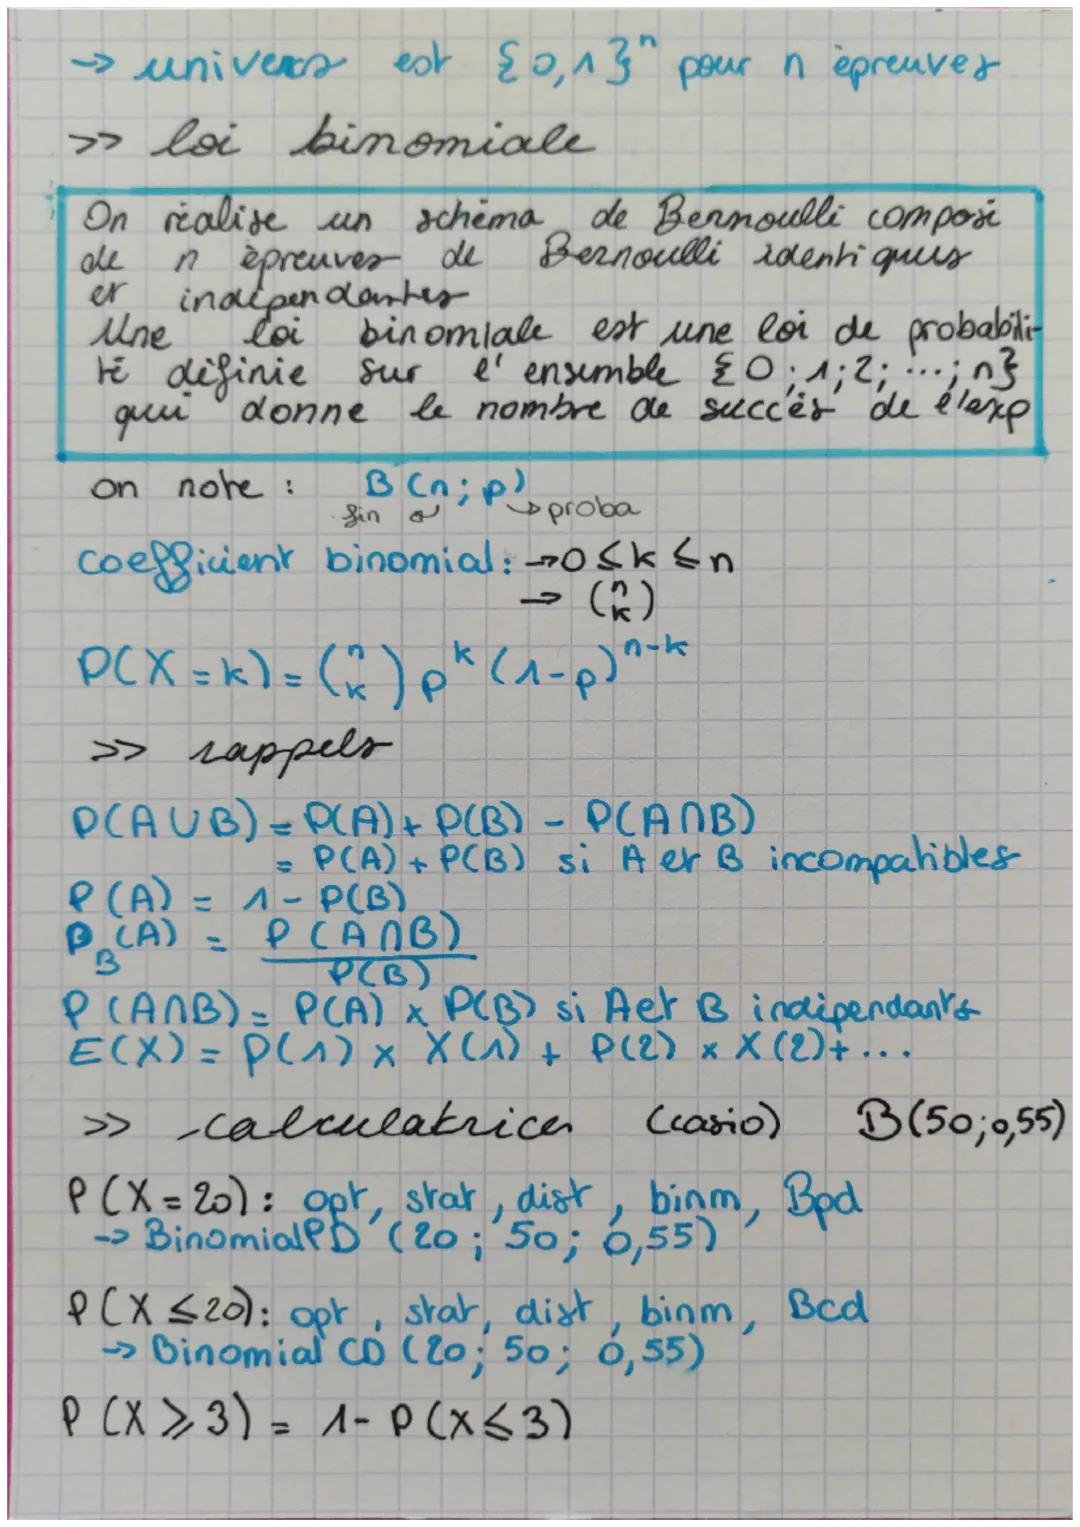 → univers est {0,1}ⁿ pour n épreuves
>> loi binomiale
On réalise un schéma de Bernoulli composé
de n épreuves de Bernoulli identiques
et indépendantes
Une loi binomiale est une loi de probabili-
té définie sur l'ensemble {0;1;2;...;n}
qui donne le nombre de succès de l'exp
on note : B(n;p)
fin → proba
coefficient binomial: → 0 ≤ k ≤ n
→ (n k)
P(X=k) = (n k) pᵏ (1-p)ⁿ⁻ᵏ
>> rappels
P(A∪B) = P(A) + P(B) - P(A∩B)
= P(A) + P(B) si A et B incompatibles
P(A) = 1 - P(B)
P_B(A) = P(A∩B)
P(B)
P(A∩B) = P(A) x P(B) si A et B indépendants
E(X) = p(1) x X(1) + P(2) x X(2) + ...
>> calculatrice (casio) B(50;0,55)
P(X=20): opt, stat, dist, binm, Bpd
→ BinomialPD (20; 50; 0,55)
P(X≤20): opt, stat, dist, binm, Bcd
→ Binomial CD (20; 50; 0,55)
P(X≥3) = 1 - P(X≤3)